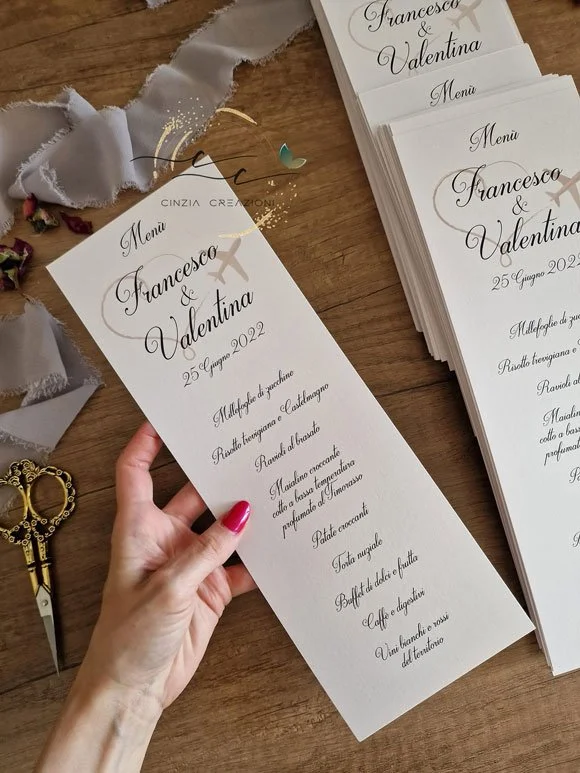 Francesco
&
Valentina
Menù
Menù
Francesco
&
Valentina
25 Giugno 2022
Millefoglie di
Risotto trevigiana e
Ravioli al
Maialino
cotto a bassa
profumato
CC
CINZIA CREAZIONI
Menù
Francesco
&
Valentina
25 Giugno 2022
Millefoglie di zucchine
Risotto trevigiana e Castelmagno
Ravioli al brasato
Maialino croccante
cotto a bassa temperatura
profumato al Timorasso
Patate croccanti
Torta nuziale
Buffet di dolci e frutta
Caffè e digestivi
Vini bianchi e rossi
del territorio